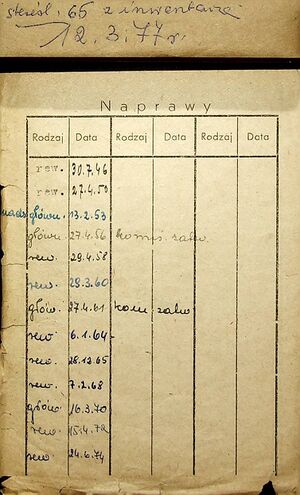 65 z inwentarza
12.3.77 r.
Naprawy
Rodzaj Data Rodzaj Data Rodzaj Data
rew. 30.7.46
rew. 27.4.50
główn. 13.2.53
główn. 27.4.56
rew. 29.4.58
rew. 29.3.60
główn. 27.4.61
rew 6.1.64
rew. 28.12.65
rew. 7.2.68
główn. 16.3.70
rew. 15.4.72
rew. 24.6.74